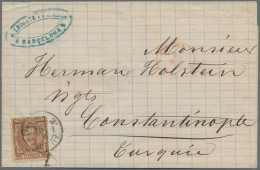 BARCELONA
Monsieur
Herman Holstein
Constantinople
Turquie